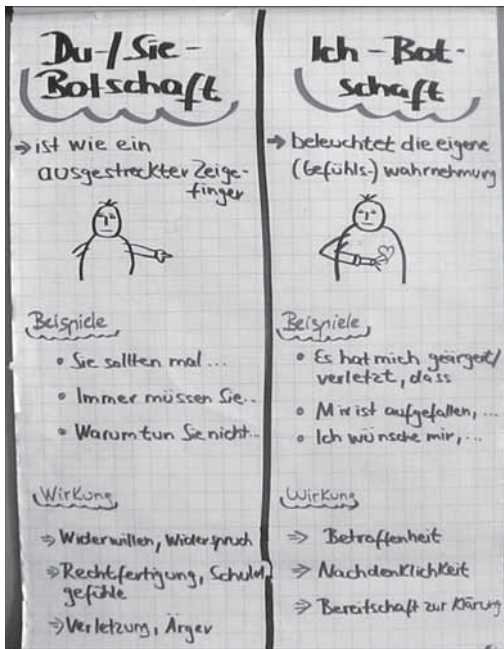 Du-/Sie-
Botschaft
→ ist wie ein
ausgestreckter Zeige-
finger
Beispiele
• Sie sollten mal...
• Immer müssen Sie..
• Warum tun Sie nicht...
Wirkung
⇒ Widerwillen, Widerspruch
⇒ Rechtfertigung, Schuld
gefühle
⇒ Verletzung, Ärger
Ich-Bot-
schaft
→ beleuchtet die eigene
(Gefühls-) wahrnehmung
Beispiele
• Es hat mich geärgert/
verletzt, dass
• Mir ist aufgefallen,...
• Ich wünsche mir,...
Wirkung
⇒ Betroffenheit
⇒ Nachdenklichkeit
⇒ Bereitschaft zur Klärung